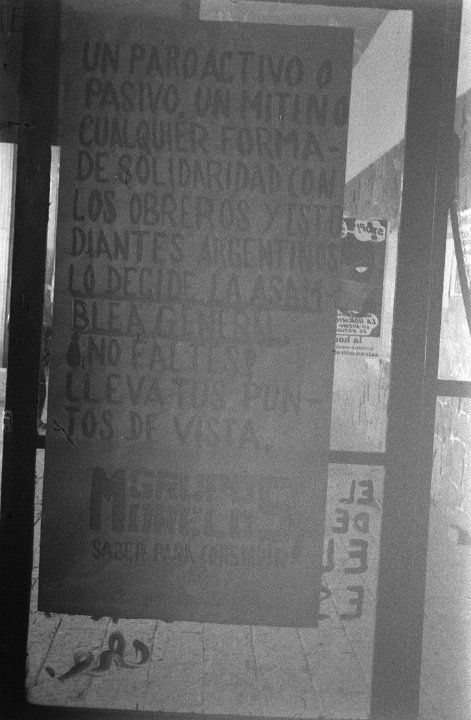 UN PARO ACTIVO O
PASIVO, UN MITIN O
CUALQUIER FORMA-
DE SOLIDARIDAD CON
LOS OBREROS Y ESTU
DIANTES ARGENTINOS
LO DECIDE LA ASAM-
BLEA GENERAL
¡NO FALTES!
LLEVA TUS PUN-
TOS DE VISTA.
GRUPO
MORELOS
SABER PARA CONSEGUIR
LA HORMIGA
EL
DE
Che